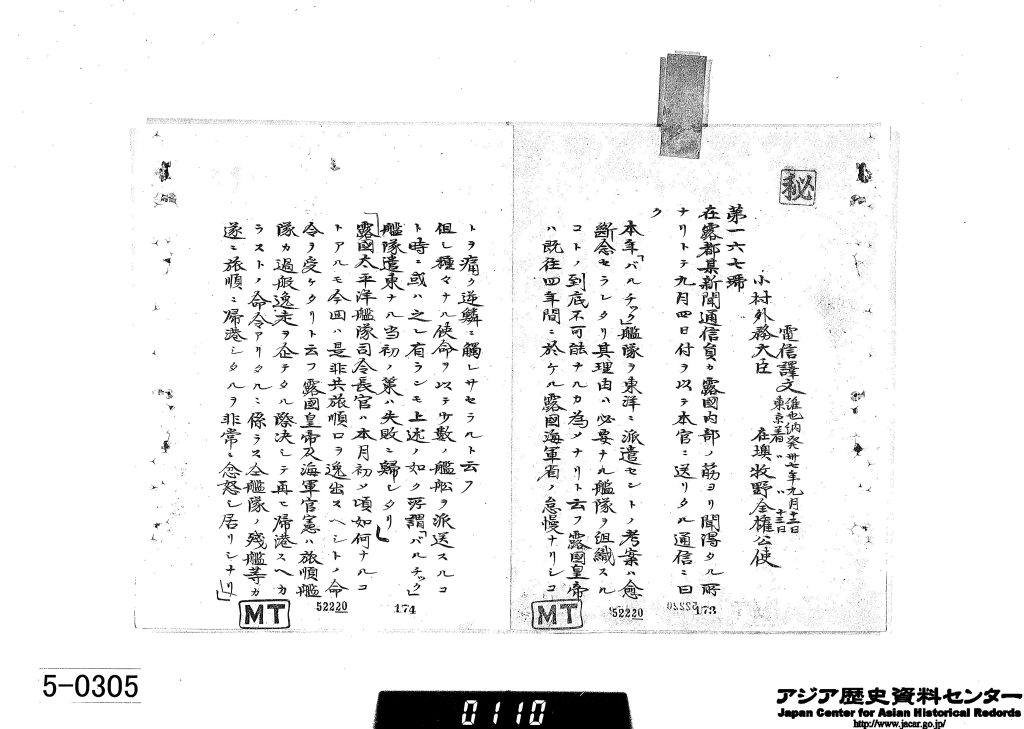 秘
電信譯文
維也納発卅七年九月十二日
東京着〃〃十三日
小村外務大臣
在墺牧野全權公使
第一六七號
在露都某新聞通信員カ露國内部ノ筋ヨリ聞得タル所
ナリトテ九月四日付ヲ以テ本官ニ送リタル通信ニ曰
ク
本年「バルチック」艦隊ヲ東洋ニ派遣セントノ考案ハ愈
斷念セラレタリ其理由ハ必要ナル艦隊ヲ組織スル
コトノ到底不可能ナルカ為メナリト云フ露國皇帝
ハ既往四年間ニ於ケル露國海軍省ノ怠慢ナリシコ
MT
52220
173
トヲ痛ク逆鱗ニ觸レサセラルト云フ
但シ種々ナル使命ヲ以テ少數ノ艦舩ヲ派送スルコ
ト時ニ或ハ之レ有ランモ上述ノ如ク所謂「バルチック」
艦隊遣東ナル当初ノ策ハ失敗ニ歸シタリ」
「露國太平洋艦隊司令長官ハ本月初メ頃如何ナルコ
トアルモ今回ハ是非共旅順口ヲ逸出スヘシトノ命
令ヲ受ケタリト云フ露國皇帝及海軍官憲ハ旅順艦
隊カ過般逸走ヲ企テタル際決シテ再ヒ帰港スヘカ
ラストノ命令アリタルニ係ラス全艦隊ノ殘艦等カ
遂ニ旅順ニ帰港シタルヲ非常ニ忿怒シ居リシナリ」
MT
52220
174
5-0305
0110
アジア歴史資料センター
Japan Center for Asian Historical Records
http://www.jacar.go.jp/